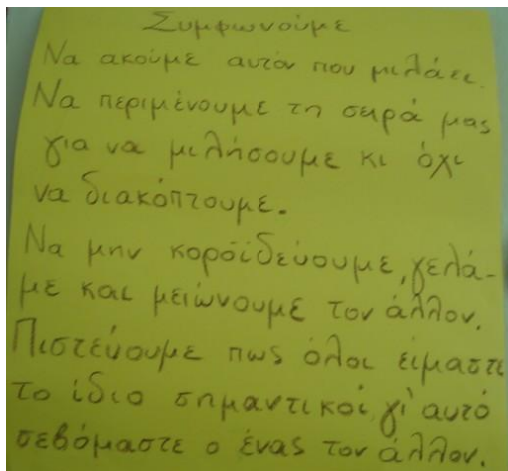 Συμφωνούμε
Να ακούμε αυτόν που μιλάει.
Να περιμένουμε τη σειρά μας
για να μιλήσουμε κι όχι
να διακόπτουμε.
Να μην κοροϊδεύουμε, γελά-
με και μειώνουμε τον άλλον.
Πιστεύουμε πως όλοι είμαστε
το ίδιο σημαντικοί γι' αυτό
σεβόμαστε ο ένας τον άλλον.